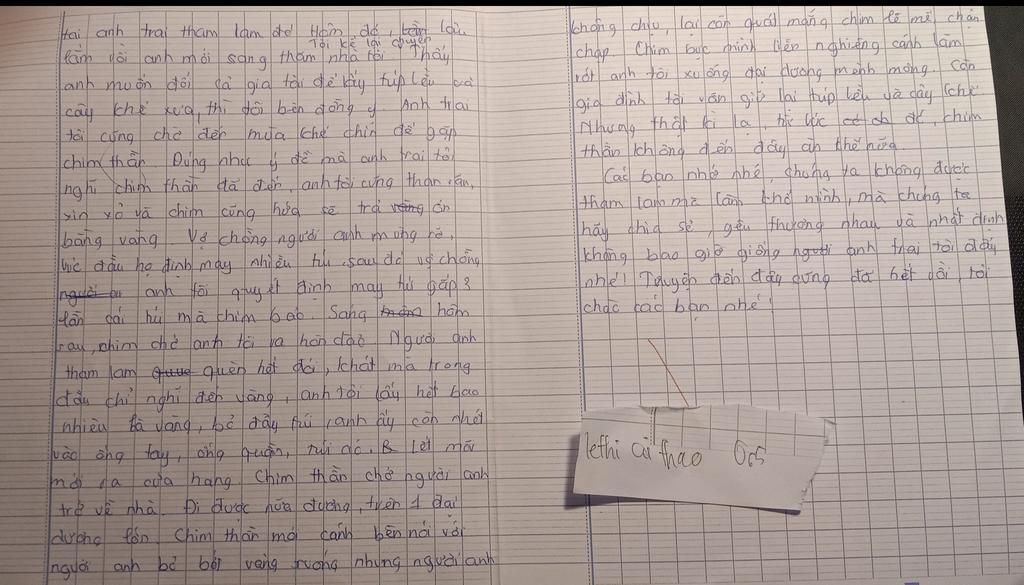 tai anh trai tham lam đó Hôm đó, lâu
Tôi kể lại chuyện
lắm rồi anh mới sang thăm nhà tôi Thấy
anh muốn đổi cả gia tài để lấy túp lều và
cây khế xưa, thì tôi bèn đồng ý. Anh trai
tôi cũng chờ đến mùa khế chín để gặp
chim thần. Đúng như ý đồ mà anh trai tôi
nghĩ chim thần đã đến, anh tôi cũng than vãn,
xin xỏ và chim cũng hứa sẽ trả ơn
bằng vàng. Vợ chồng người anh mừng rỡ,
lúc đầu họ định may nhiều túi sau đó vợ chồng
anh tôi quyết định may túi gấp 3
lần cái túi mà chim bảo. Sáng hôm
sau, chim chở anh tôi ra hòn đảo Người anh
tham lam quên hết đói, khát mà trong
đầu chỉ nghĩ đến vàng, anh tôi lấy hết bao
nhiêu là vàng, bỏ đầy túi, anh ấy còn nhét
vào ống tay, ống quần, túi áo. Lết mãi
mới ra cửa hang. Chim thần chở người anh
trở về nhà. Đi được nửa đường, trên 1 đại
dương lớn. Chim thần mỏi cánh bèn nói với
người anh bỏ bớt vàng xuống nhưng người anh
không chịu, lại còn quát mắng chim lề mề chậm
chạp. Chim bực mình liền nghiêng cánh làm
rớt anh tôi xuống đại dương mênh mông. Còn
gia đình tôi vẫn giữ lại túp lều và cây khế.
Nhưng thật kì lạ, từ lúc đó, chim
thần không đến đây ăn khế nữa.
Các bạn nhớ nhé, chúng ta không được
tham lam mà làm khổ mình, mà chúng ta
hãy chia sẻ, yêu thương nhau và nhất định
không bao giờ giống người anh trai tôi đấy
nhé! Truyện đến đây cũng đã hết rồi, tôi
chào các bạn nhé!
lethi cù thao 065